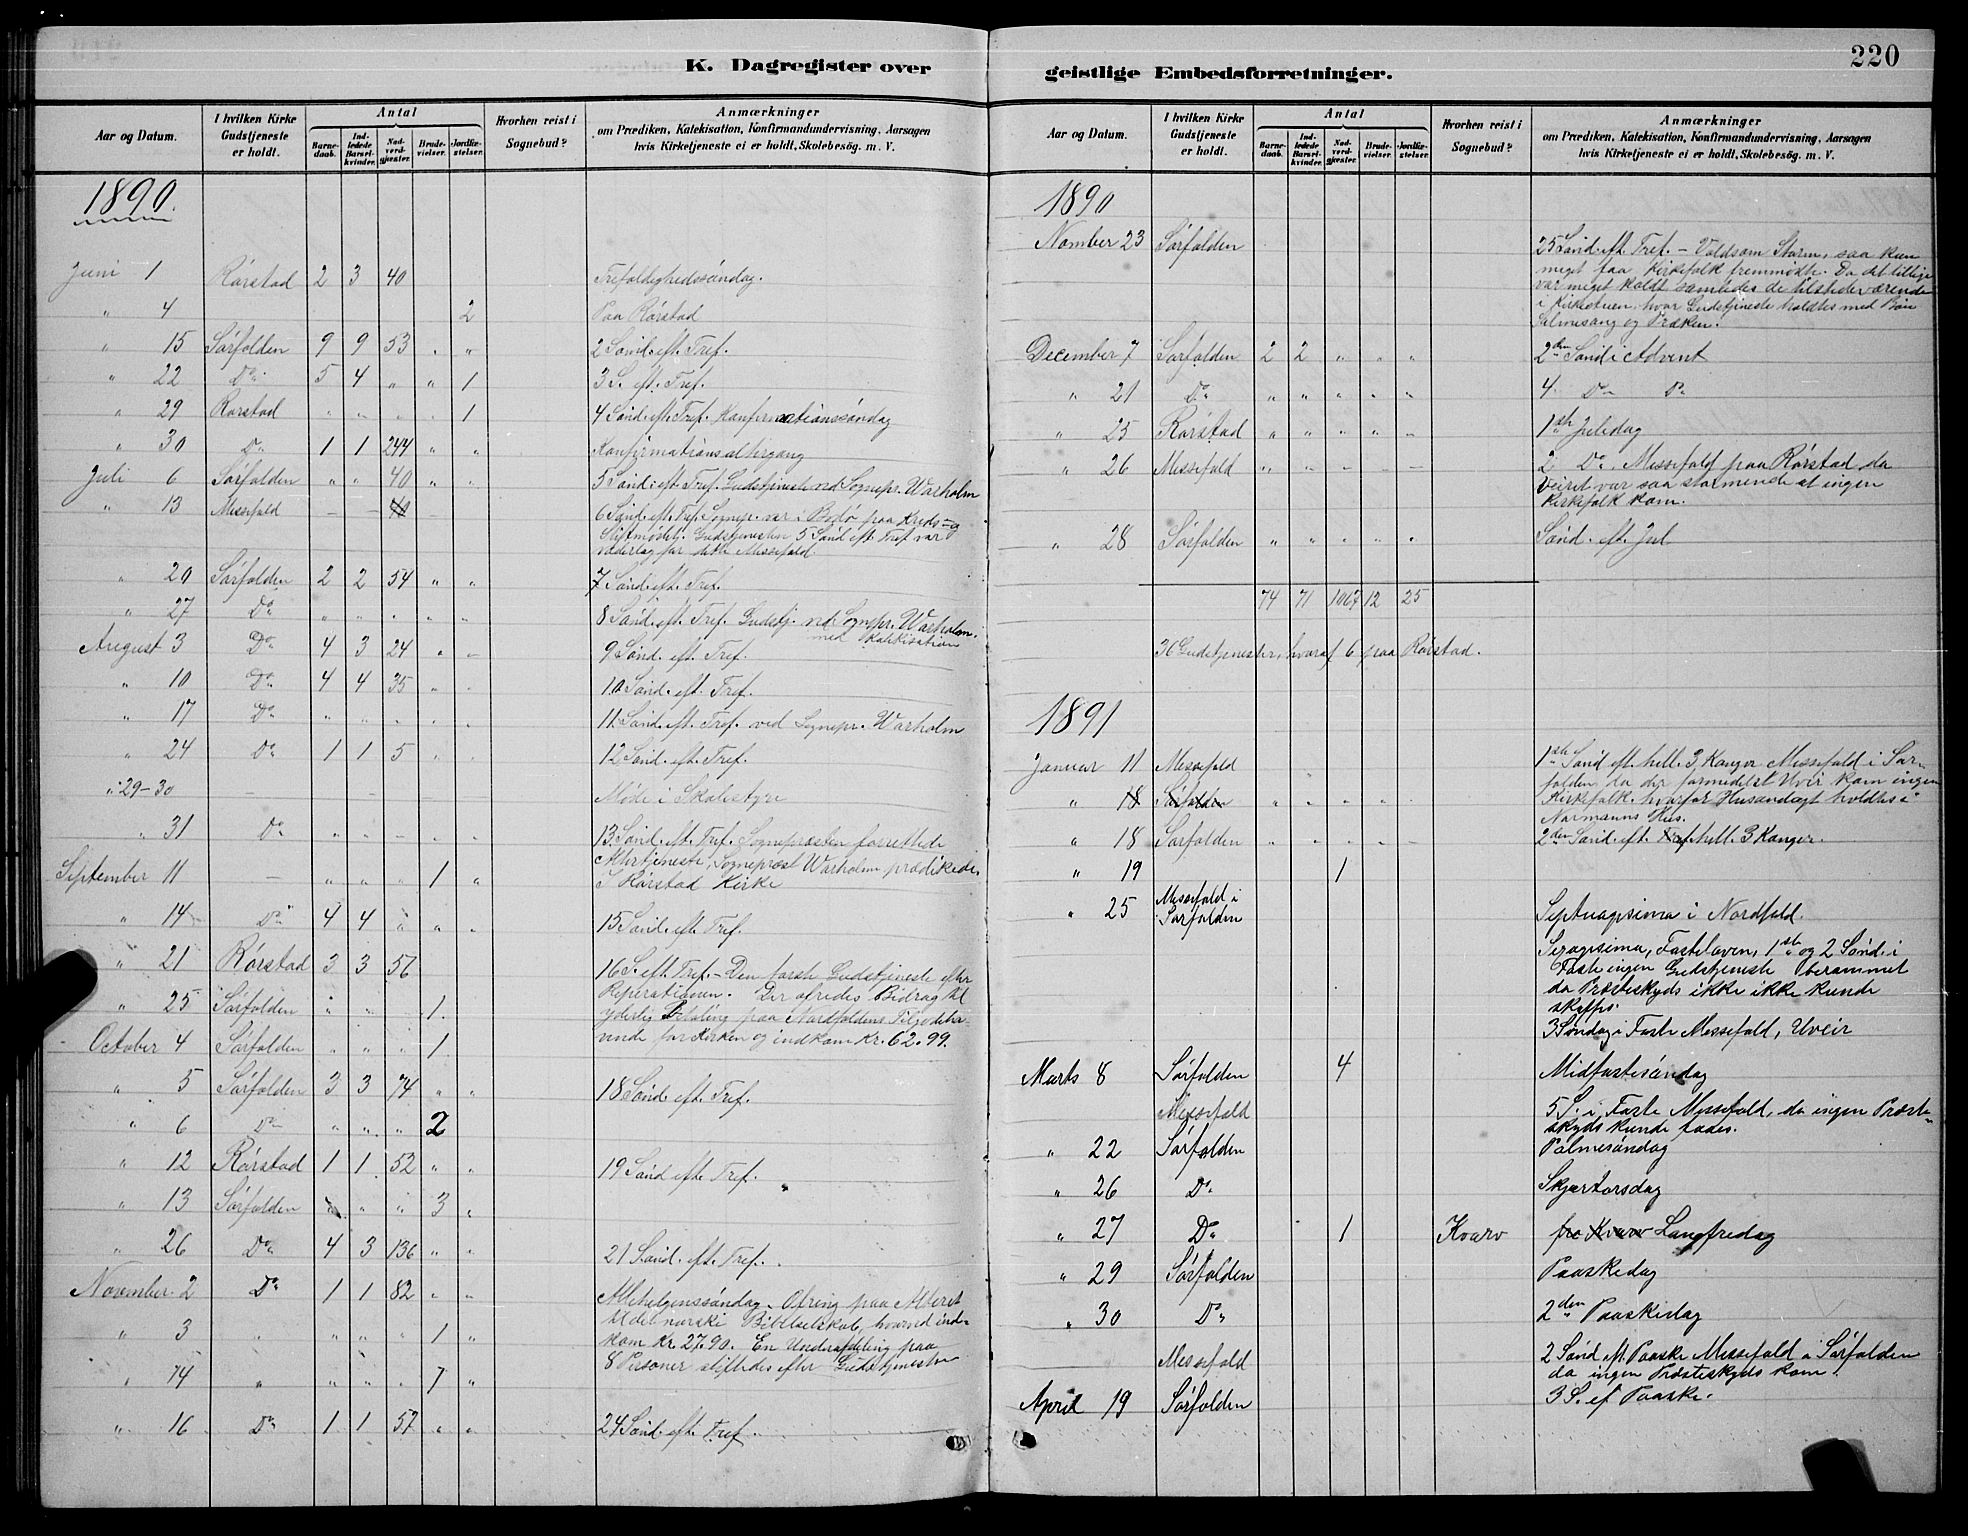 220
K. Dagregister over
geistlige Embedsforretninger.
Aar og Datum.
I hvilken Kirke Gudstjeneste er holdt.
Antal
Barnedaab.
Indledede Barselkvinder.
Nadverdgjester.
Brudevielser.
Jordfæstelser.
Hvorhen reist i Sognebud?
Anmærkninger
om Prædiken, Katekisation, Konfirmandundervisning, Aarsagen
hvis Kirketjeneste ei er holdt, Skolebesøg. m. V.
1890.
Juni 1 Rørstad 2 3 40 Trefoldighedssøndag.
" 4 2 Paa Rørstad
" 15 Sørfolden 9 9 53 . " 2 Sønd. eft. Tref.
" 22 Do 5 4 " " 1 3 S. eft. Tref.
" 29 Rørstad " " " " 1 4 Sønd. eft. Tref. Konfirmationssøndag
" 30 Do 1 1 244 " " Konfirmationsaltergang
Juli 6 Sørfolden " " 40 " " 5 Sønd. eft. Tref. Gudstjeneste ved Sognepr. Warholm
" 13 Messefald – – 40 6 Sønd. eft. Tref. Sognepr. var i Bodø paa Kreds- og
Stiftmøde. Gudstjenesten 5 Sønd eft. Tref var
vederlag for dette Messefald
" 20 Sørfolden 2 2 54 " " 7 Sønd. eft. Tref.
" 27 Do " " " " " 8 Sønd. eft. Tref. Gudstj. ved Sognepr. Warholm.
med Katekisation
August 3 Do 4 3 24 " " 9 Sønd. eft. Tref.
" 10 Do 4 4 35 " " 10 Sønd. eft. Tref.
" 17 Do " " " " " 11 Sønd. eft. Tref. ved Sognepr. Warholm
" 24 Do 1 1 5 " " 12 Sønd. eft. Tref.
" 29–30 – – Møde i Skolestyre
" 31 Do " " – " " 13 Sønd. eft. Tref. Sognepræsten forrettede
Altertjeneste, Sognepræst Warholm prædikede.
September 11 – " " " 1 " I Rørstad Kirke
" 14 Do 4 4 " " " 15 Sønd. eft. Tref.
" 21 Rørstad 3 3 56 16 S. eft. Tref. – Den første Gudstjeneste efter
Reperationen. Der ofredes Bidrag til
" 25 Sørfolden " " 1. yderlig Betaling paa Nordfoldens
October 4 Sørfolden " " " 1. for Kirken og indkom Kr. 62.99.
" 5 Sørfolden 3 3 74 " " 18 Sønd. eft. Tref.
" 6 Do " " " 2
" 12 Rørstad 1 1 52 " " 19 Sønd eft. Tref.
" 13 Sørfolden " " " 3 "
" 26 Do 4 3 136 " " 21 Sønd. eft. Tref.
November 2 Do 1 1 82 " " Allehelgenssøndag. Ofring paa Alteret
til det norske Bibelselskab, hvorved ind-
" 3 " " " " 1 " kom Kr. 27.90. En Underafdeling paa
8 Personer stiftedes efter Gudstjenesten
" 14 " " " " 7 "
" 16 Do 1 1 57 " " 24 Sønd. eft. Tref.
Aar og Datum.
I hvilken Kirke Gudstjeneste er holdt.
Antal
Barnedaab.
Indledede Barselkvinder.
Nadverdgjester.
Brudevielser.
Jordfæstelser.
Hvorhen reist i Sognebud?
Anmærkninger
om Prædiken, Katekisation, Konfirmandundervisning, Aarsagen
hvis Kirketjeneste ei er holdt, Skolebesøg. m. V.
1890
November 23 Sørfolden 25 Sønd. eft. Tref. – Voldsom Storm, saa kun
meget faa Kirkefolk fremmødte. Da det tillige
var meget koldt samledes de tilstedeværende
i Kirkestuen, hvor Gudstjeneste holdtes med Bøn
Salmesang og Præken.
December 7 Sørfolden 2 2 " " " 2den Sønd i Advent
" 21 Do " " " " " 4. Do Do
" 25 Rørstad " " " " " 1ste Juledag
" 26 Messefald " " – – – 2 Do. Messefald paa Rørstad da
Veiret var saa stormende at ingen
Kirkefolk kom.
" 28 Sørfolden " " " " " Sønd. eft. Jul
74 71 1067 12 25
36 Gudstjenester, hvoraf 6 paa Rørstad.
1891
Januar 11 Messefald 1ste Sønd eft. hell. 3 Konger Messefald i Sør-
folden da der formedelst Uveir kom ingen
" 18 Sørfolden " " " " " Kirkefolk. hvorfor Husandagt holdtes i
Normanns Hus.
" 18 Sørfolden " " " " " 2den Sønd. eft. Tref hell. 3 Konger.
" 19 1
" 25 Messefald i
Sørfolden Septuagesima i Nordfold.
Sexagesima, Fastelaven, 1ste og 2 Sønd. i
Faste ingen Gudstjeneste berammet
da Præsteskyds ikke ikke kunde
skaffes.
3 Søndag i Faste Messefald, Uveir
Marts 8 Sørfolden 4 Midfastesøndag
Messefald 5 S. i Faste Messefald, da ingen Præste-
skyds kunde faaes.
" 22 Sørfolden Palmesøndag
" 26 Do Skjærtorsdag
" 27 Do 1 Kvarv fra Kvarv Langfredag
" 29 Sørfolden Paaskedag
" 30 Do 2den Paaskedag
Messefald 2 Sønd eft. Paaske Messefald i Sørfolden
da ingen Præsteskyds kom.
April 19 Sørfolden 3 S. ef Paaske.